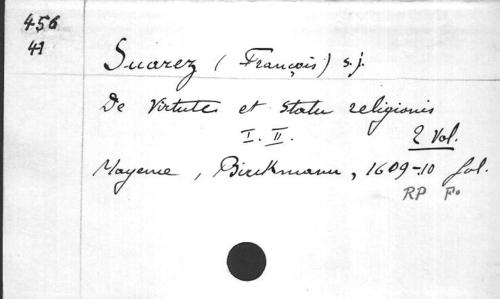 456
41
Suarez (François) s.j.
De Virtute et Statu religionis
I. II.
2 Vol.
Mayence, Birckmann, 1609-10 fol.
RP F°